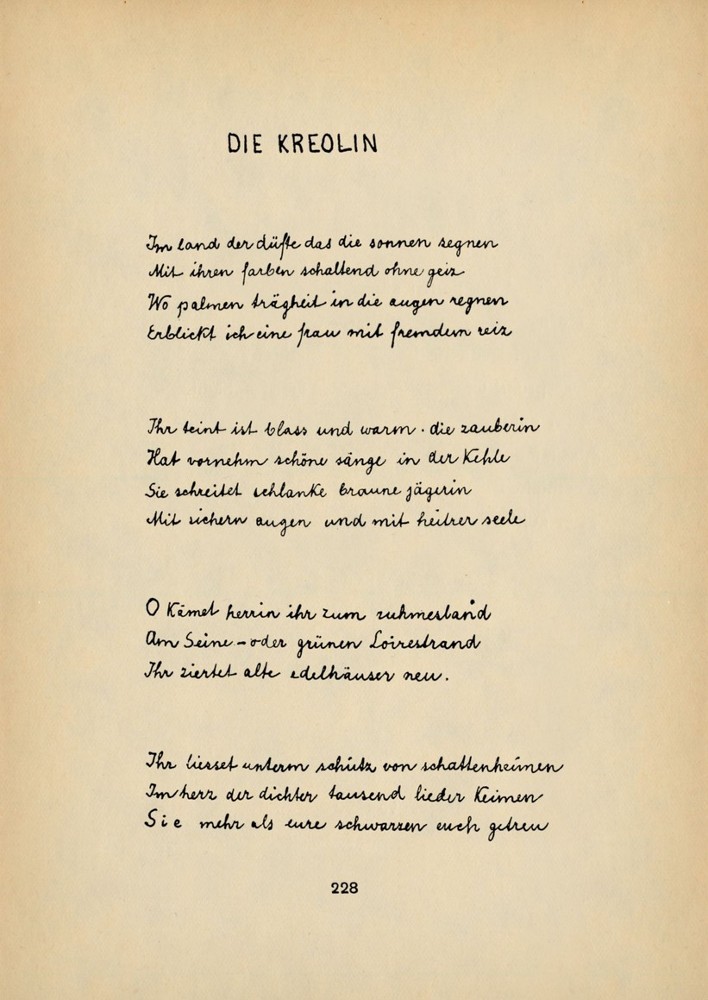 DIE KREOLIN
Im land der düfte das die sonnen segnen
Mit ihren farben schaltend ohne geiz
Wo palmen trägheit in die augen regnen
Erblickt ich eine frau mit fremdem reiz
Ihr teint ist blass und warm · die zauberin
Hat vornehm schöne sänge in der Kehle
Sie schreitet schlanke braune jägerin
Mit sichern augen und mit heitrer seele
O Kämet herrin ihr zum ruhmesland
Am Seine - oder grünen Loirestrand
Ihr ziertet alte edelhäuser neu.
Ihr liesset unterm schutz von schattenheimen
Im herz der dichter tausend lieder Keimen
Sie mehr als eure schwarzen euch getreu
228